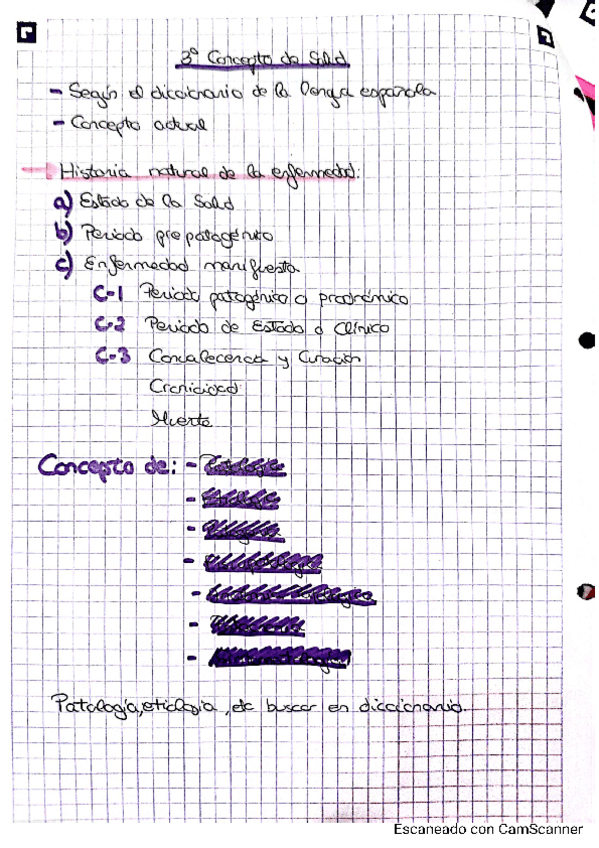 3º Concepto de Salud
- Según el diccionario de la lengua española
- Concepto actual
Historia natural de la enfermedad.
a) Estado de la Salud
b) Periodo prepatogénico
c) Enfermedad manifiesta
C-1 Periodo patogénico o prodrómico
C-2 Periodo de Estado o Clínico
C-3 Convalecencia y Curación
Cronicidad
Muerte
Concepto de: -
-
-
-
-
-
-
Patología, etiología, etc buscar en diccionario.
Escaneado con CamScanner